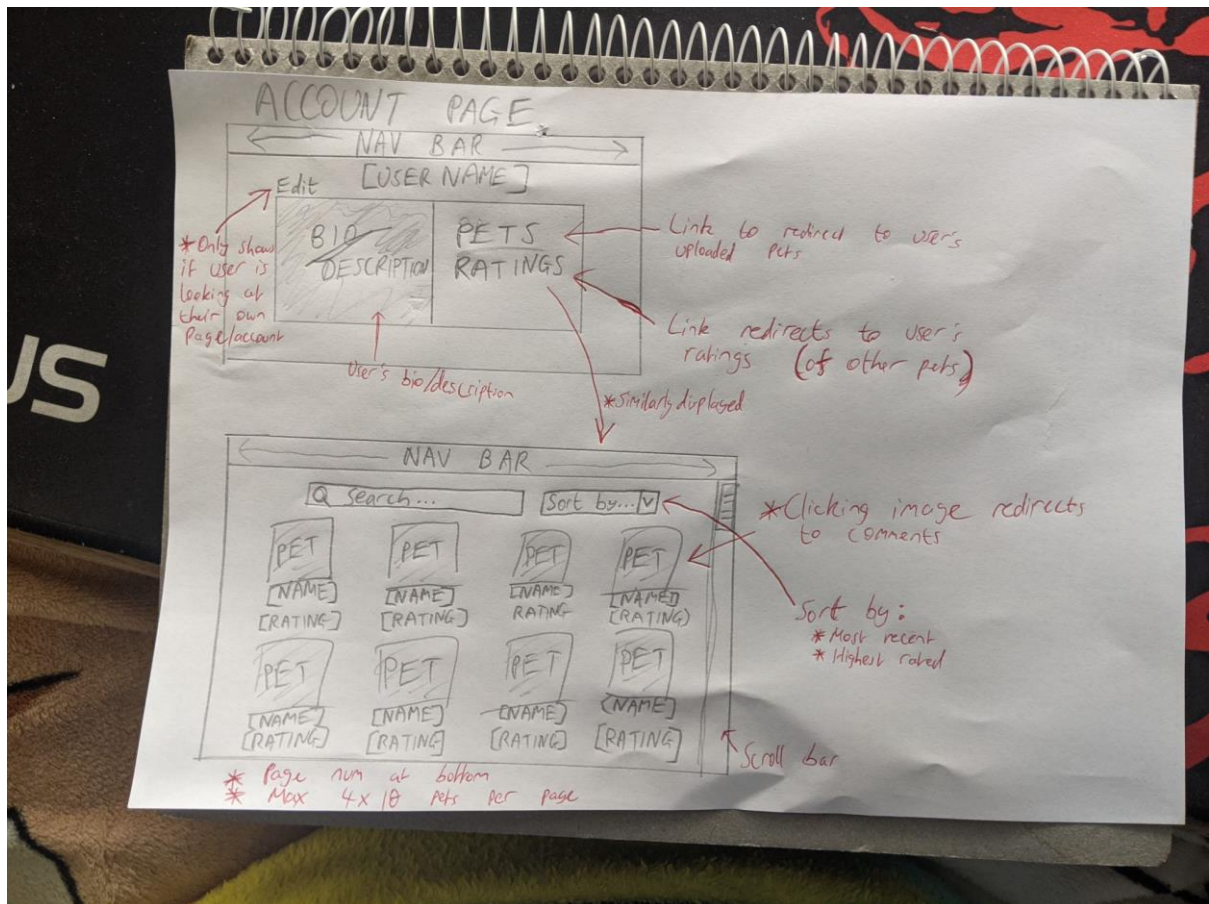 ACCOUNT PAGE
*
NAV BAR
[USER NAME]
Edit
BIO
DESCRIPTION
PETS
RATINGS
*Only shows
if user is
looking at
their own
Page/account
User's bio/description
Link to redirect to user's
uploaded pets
Link redirects to user's
ratings (of other pets)
*Similarly displayed
US
NAV BAR
Search...
Sort by... v
PET PET PET PET
[NAME] [NAME] [NAME] [NAME]
[RATING] [RATING] RATING [RATING]
PET PET PET PET
[NAME] [NAME] [NAME] [NAME]
[RATING] [RATING] [RATING] [RATING]
*Clicking image redirects
to comments
Sort by:
* Most recent
* Highest rated
Scroll bar
* Page num at bottom
* Max 4x10 pets per page